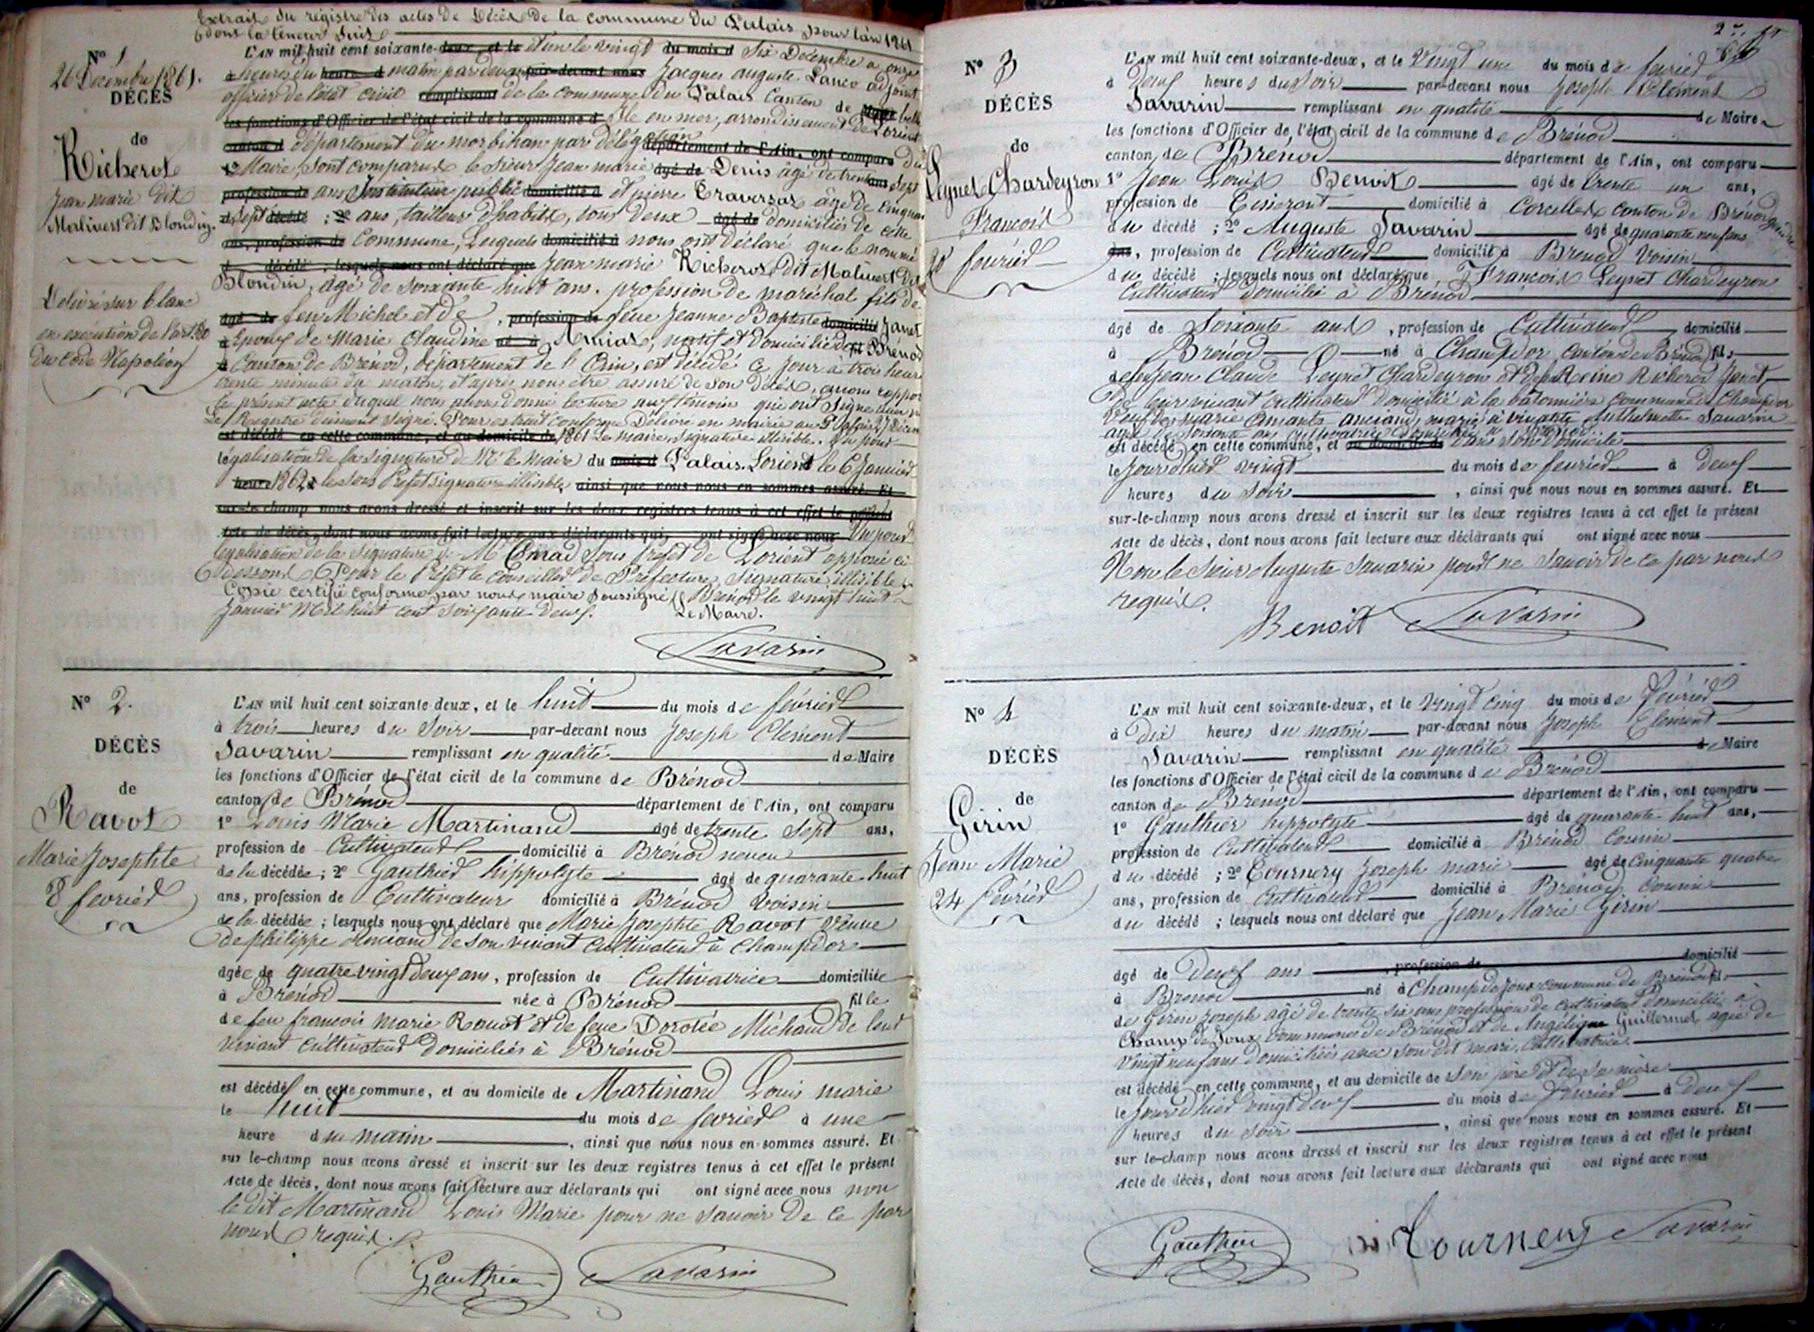 Extrait du régistre des actes de Décès de la commune du Palais pour l'an 1861
dont la teneur suit
N° 1
26 Décembre 1861.
DÉCÈS
de
Richerot
Jean marie dit
Malivert dit Blondin.
Délivré sur blanc
en exécution de l'art. 80
du Code Napoléon
L'AN mil huit cent soixante-deux, et le et un le vingt du mois d Six Décembre a onze
heures du heure d matin par devant par-devant nous Jacques auguste Lanco adjoint
officier de l'état civil remplissant de la commune du Palais Canton de Maire belle
les fonctions d'Officier de l'état civil de la commune d Ile en mer, arrondissement de Lorient
canton d département du morbihan par délégation département de l'Ain, ont comparu du
1° Maire Sont comparus le sieur Jean marie agé de Denis âgé de trente ans sept
profession de ans Instituteur public domicilié à et pierre Traversat âgé de Cinquante
d sept décédé ; 2° ans, tailleur d'habits, tous deux agé de domiciliés de cette
ans, profession de Commune, Lesquels domicilié à nous ont déclaré que le nommé
d décédé ; lesquels nous ont déclaré que Jean marie Richerot, dit Malivert dit
Blondin, âgé de soixante huit ans. profession de maréchal fils de
agé de feu Michel et de , profession de feue Jeanne Baptiste domicilié Janet
à Epoux de Marie Claudine né à , natif et domicilié de fil Brénod
d Canton de Brénod, département de l'Ain, est décédé ce jour à trois heures
trente minutes du matin, et après nous être assuré de son décès, avons
le présent acte duquel nous avons donné lecture aux témoins qui ont signé avec
Le Registre dûment signé. Pour extrait conforme Délivré en mairie au Palais 27 Décem
est décédé en cette commune, et au domicile de 1861 Le maire, signature illisible. Vu pour
légalisation de la signature de Mr le maire du mois d Palais Lorient le 6 Janvier
heure 1862 le sous Préfet signature illisible ainsi que nous nous en sommes assuré. Et
sur-le-champ nous avons dressé et inscrit sur les deux registres tenus à cet effet le présent
Acte de décès, dont nous avons fait lecture aux déclarants qui ont signé avec nous Vu pour
légalisation de la signature de Mr Sous préfet de Lorient apposée ci
dessous Pour le Préfet le conseiller de Préfecture, signature illisible
Copie certifié conforme par nous maire soussigné Brénod le vingt huit
Janvier Mil huit cent soixante deux. Le Maire.
Savarin
N° 2.
DÉCÈS
de
Ravot
Marie Josephte
8 février
L'AN mil huit cent soixante deux, et le huit du mois de février
à trois heures du Soir par-devant nous Joseph Clément
Savarin remplissant en qualité de Maire
les fonctions d'Officier de l'état civil de la commune de Brénod
canton de Brénod département de l'Ain, ont comparu
1° Louis Marie Martinand agé de trente sept ans,
profession de Cultivateur domicilié à Brénod neveu
de la décédée ; 2° Gauthier hippolyte agé de quarante huit
ans, profession de Cultivateur domicilié à Brénod voisin
de la décédée ; lesquels nous ont déclaré que Marie Josephte Ravot veuve
de philippe de son vivant Cultivateur à Champdor
agée de quatre vingt deux ans, profession de Cultivatrice domiciliée
à Brénod née à Brénod fille
de feu françois marie Ravot et de feue Dorotée Michaud de leur
vivant cultivateurs domiciliés à Brénod
est décédé en cette commune, et au domicile de Martinand Louis marie
le huit du mois de février à une
heure du matin , ainsi que nous nous en sommes assuré. Et
sur le-champ nous avons dressé et inscrit sur les deux registres tenus à cet effet le présent
Acte de décès, dont nous avons fait lecture aux déclarants qui ont signé avec nous non
le dit Martinand Louis Marie pour ne savoir de ce par
nous requis.
Gauthier Savarin
N° 3
DÉCÈS
de
Leynet Chardeyron
François
20 février
L'AN mil huit cent soixante-deux, et le Vingt une du mois de février
à deux heures du soir par-devant nous Joseph Clément
Savarin remplissant en qualité de Maire
les fonctions d'Officier de l'état civil de la commune de Brénod
canton de Brénod département de l'Ain, ont comparu
1° Jean Louis Benoit agé de trente un ans,
profession de Tisserant domicilié à Corcelles canton de Brénod gendre
du décédé ; 2° Auguste Savarin agé de quarante neuf ans
ans, profession de Cultivateur domicilié à Brénod voisin
du décédé ; lesquels nous ont déclaré que François Leynet Chardeyron
Cultivateur domicilié à Brénod
agé de Soixante ans , profession de Cultivateur domicilié
à Brénod né à Champdor canton de Brénod fils
de feu Jean Claude Leynet Chardeyron et de feue Reine Richerot Janet
de leur vivant cultivateurs domiciliés à la commune de Champdor
veuf de marie marié à Savarin
est décédé en cette commune, et au domicile de dans son domicile
le jour d'hier vingt du mois de février à deux
heures du Soir , ainsi que nous nous en sommes assuré. Et
sur-le-champ nous avons dressé et inscrit sur les deux registres tenus à cet effet le présent
Acte de décès, dont nous avons fait lecture aux déclarants qui ont signé avec nous
Non le Sieur Auguste Savarin pour ne savoir de ce par nous
requis.
Benoit Savarin
N° 4
DÉCÈS
de
Girin
Jean Marie
24 février
L'AN mil huit cent soixante-deux, et le vingt cinq du mois de février
à dix heures du matin par-devant nous Joseph Clément
Savarin remplissant en qualité de Maire
les fonctions d'Officier de l'état civil de la commune de Brénod
canton de Brénod département de l'Ain, ont comparu
1° Gauthier hippolyte agé de quarante huit ans,
profession de Cultivateur domicilié à Brénod Cousin
du décédé ; 2° Tournery Joseph marie agé de cinquante quatre
ans, profession de Cultivateur domicilié à Brénod Cousin
du décédé ; lesquels nous ont déclaré que Jean Marie Girin
agé de Deux ans , profession de domicilié
à Brénod né à Champ de Joux commune de Brénod fils
de Girin Joseph âgé de trente six ans profession de cultivateur Domicilié à
Champ de Joux commune de Brénod et de Angélique Guillermet agée de
vingt neuf ans domiciliés avec son dit mari, Cultivatrice.
est décédé en cette commune, et au domicile de son père et de sa mère
le jour d'hier vingt du mois de février à deux
heures du Soir , ainsi que nous nous en sommes assuré. Et
sur le-champ nous avons dressé et inscrit sur les deux registres tenus à cet effet le présent
Acte de décès, dont nous avons fait lecture aux déclarants qui ont signé avec nous
Gauthier Tournery Savarin